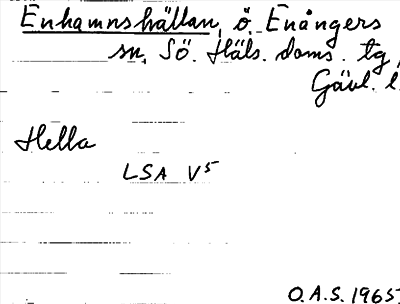 Enhamnshällan, ö. Enångers
sn, Sö. Häls. doms. tg,
Gävl. l.
Hella
LSA V5
O.A.S. 1965